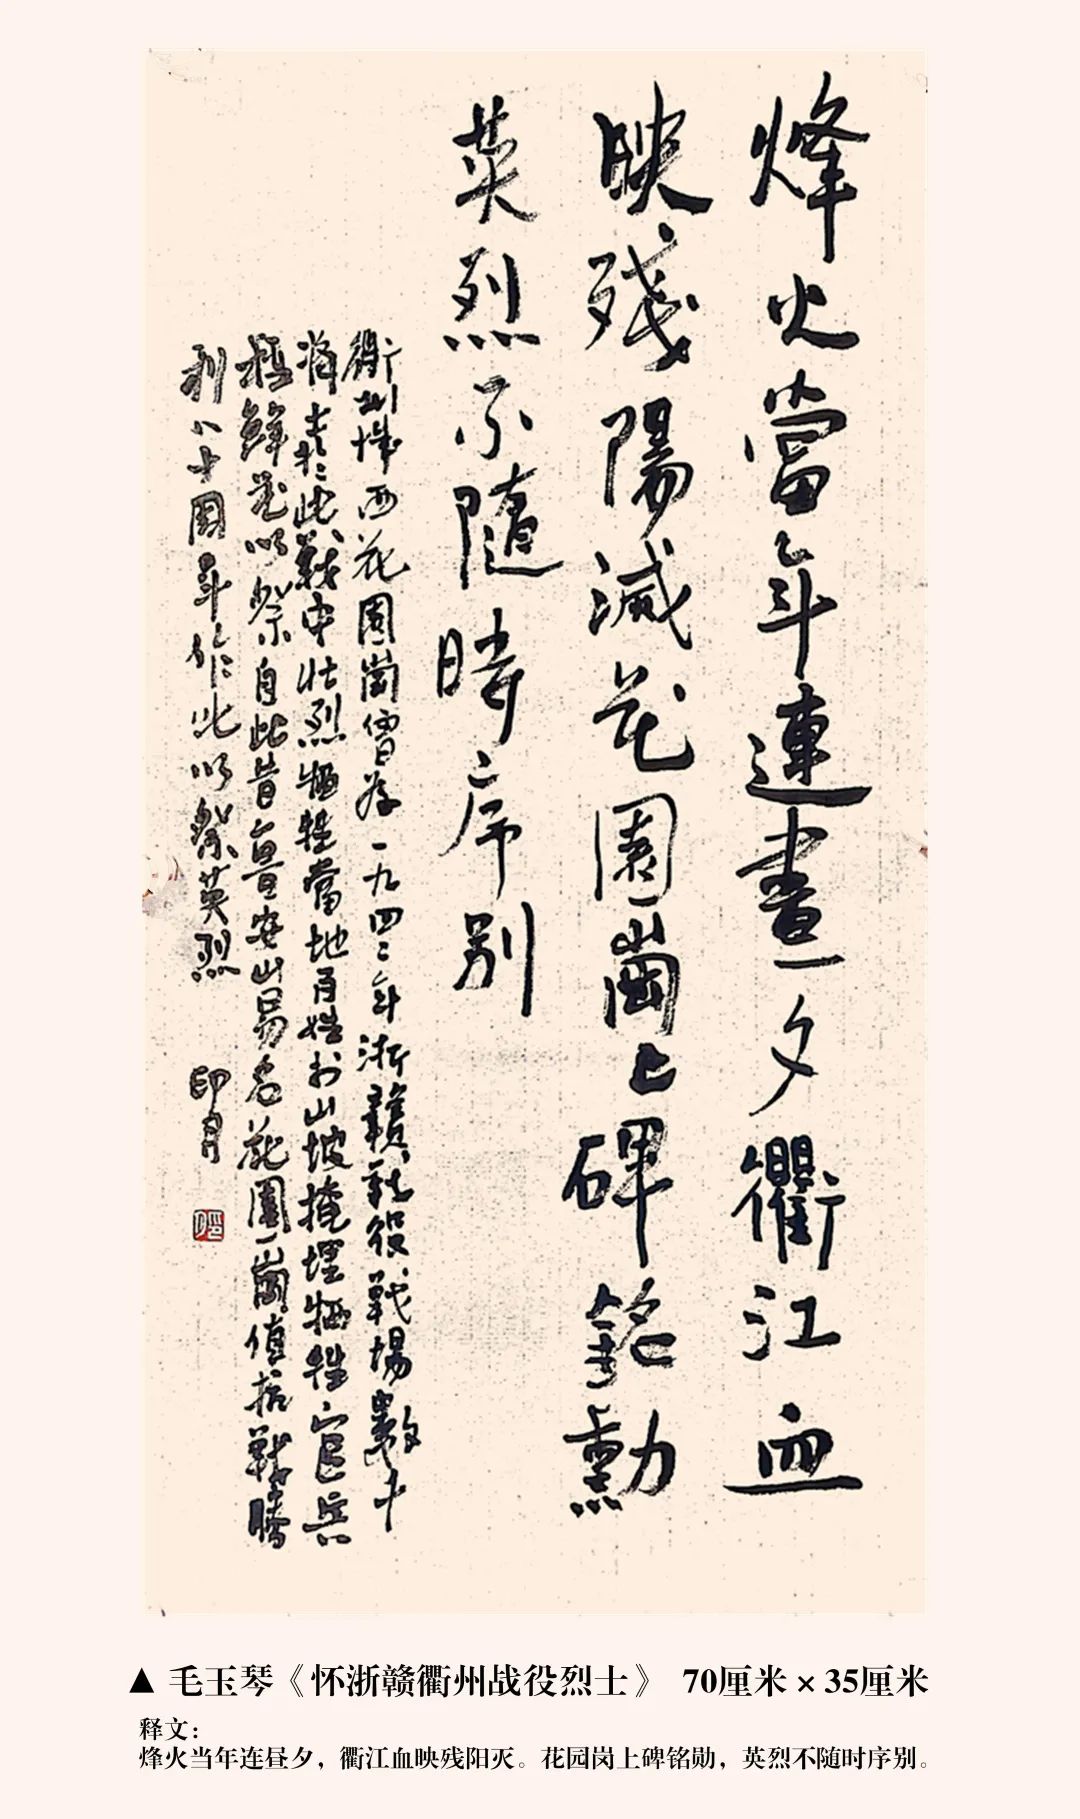 烽火當年連晝夕衢江血
映殘陽滅花園崗上碑銘勳
英烈不隨時序別
衢州城西花園崗曾為一九四二年浙贛戰役戰場數十
將士於此戰中壯烈犧牲當地百姓於山坡掩埋犧牲官兵
植鮮花以祭自此昔安山易名花園崗值抗戰勝
利八十周年作此以祭英烈
印月
▲ 毛玉琴《怀浙赣衢州战役烈士》 70厘米 × 35厘米
释文：
烽火当年连昼夕，衢江血映残阳灭。花园岗上碑铭勋，英烈不随时序别。